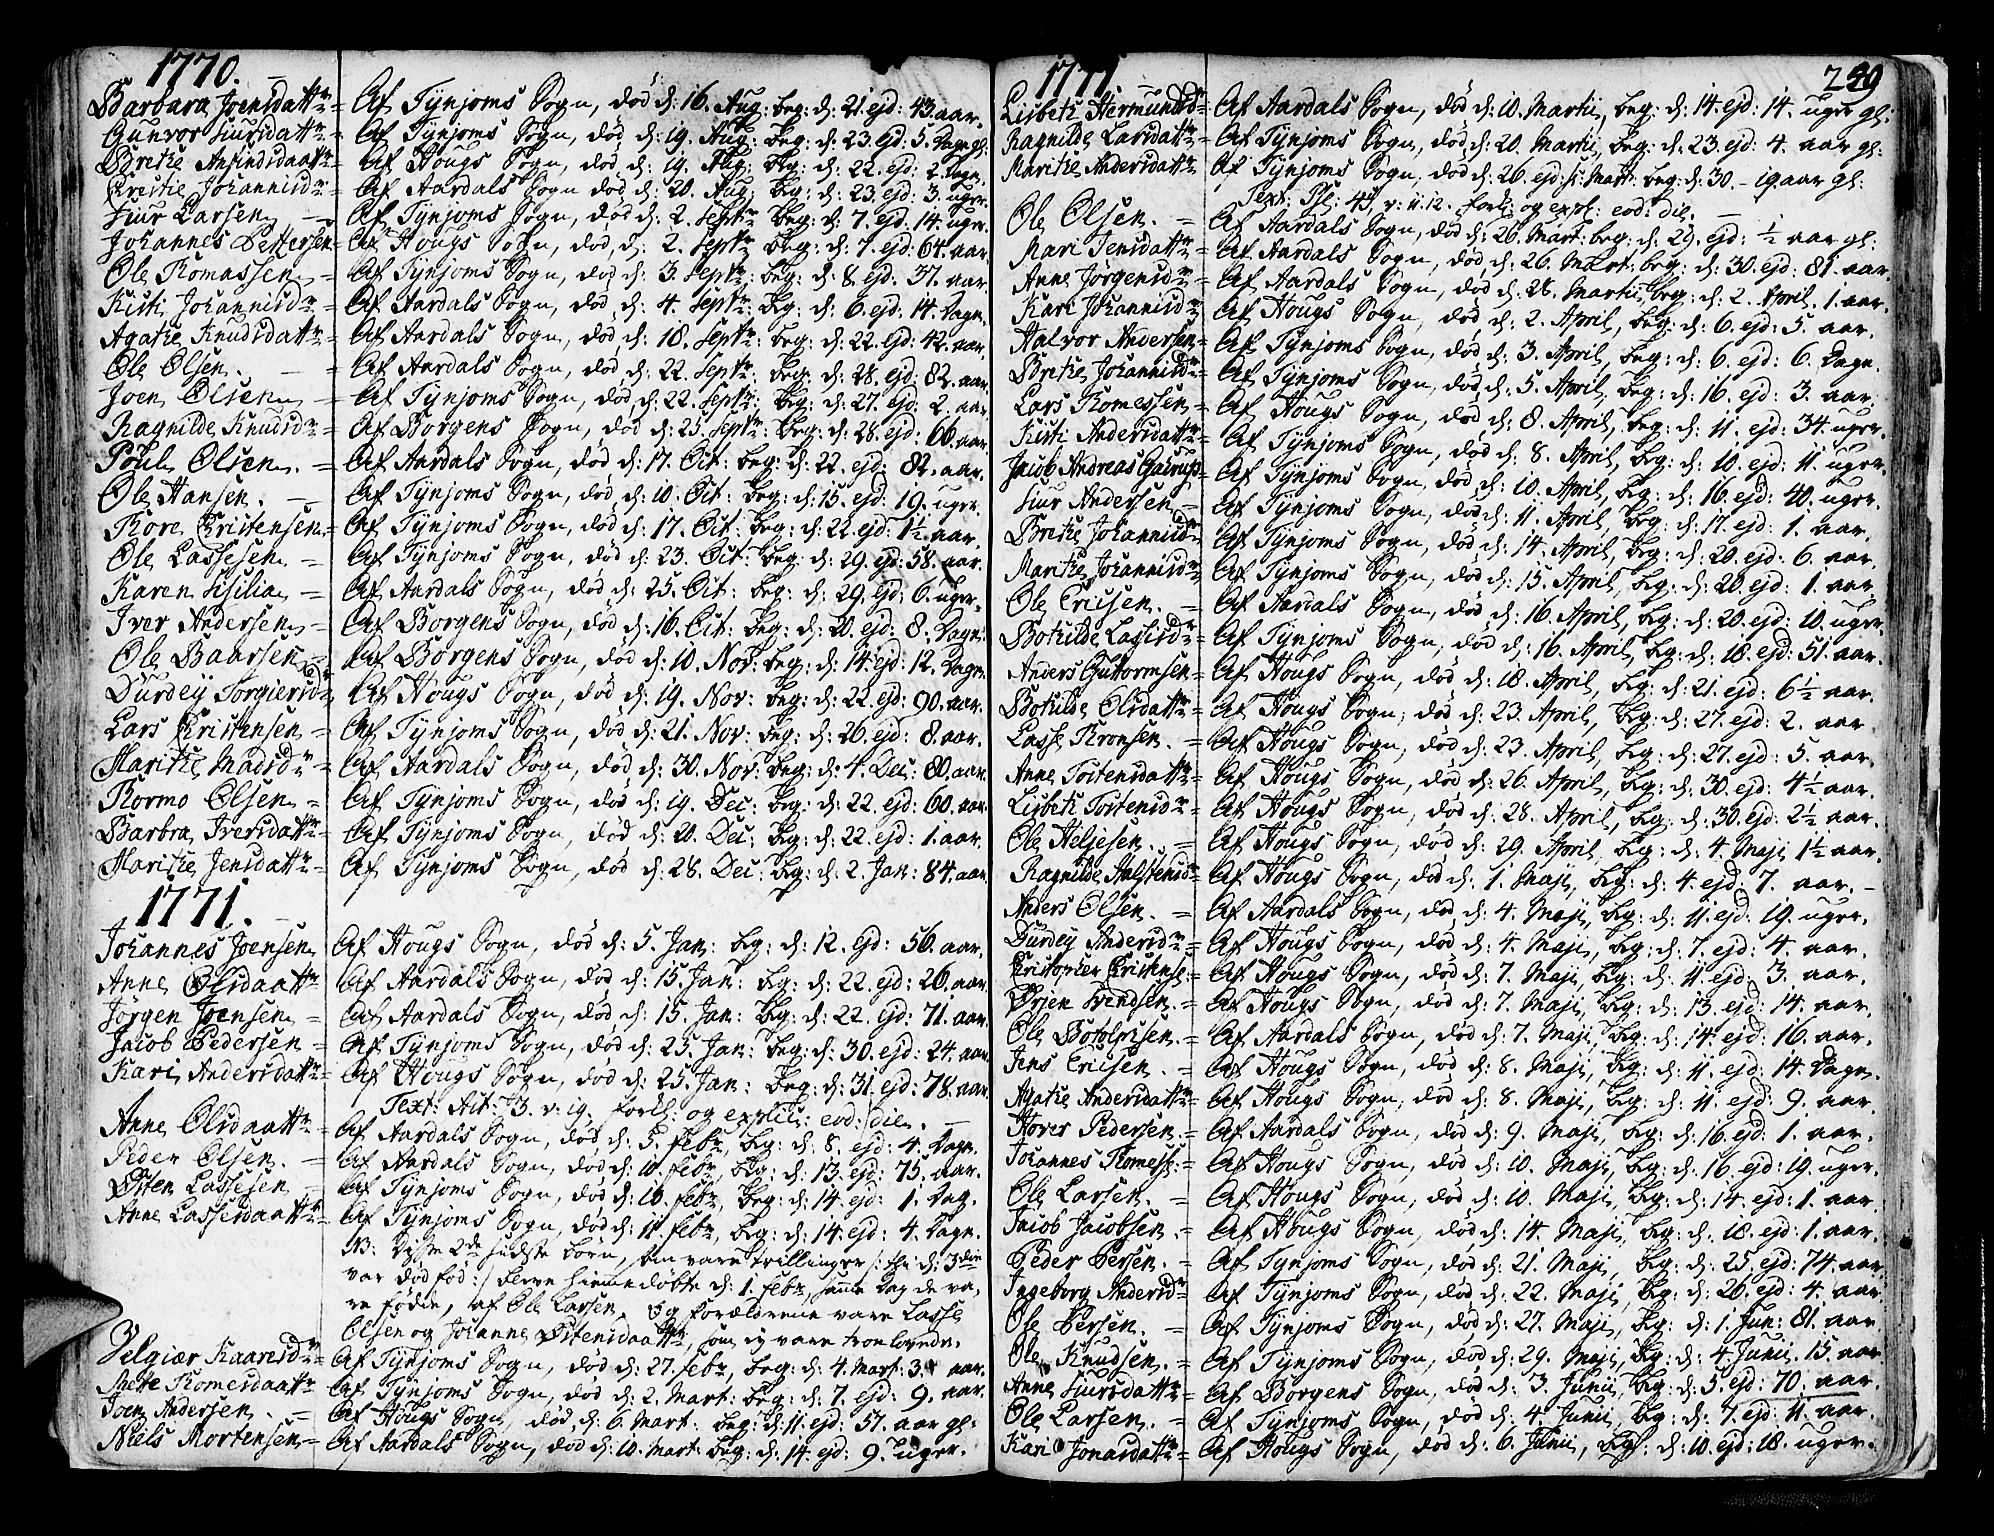 1770.
Barbara Joensdattr = Af Tÿnjoms Sogn, død d: 16. Aug: beg: d: 21. ejd: 43. aar.
Gunvor Siursdattr = Af Tÿnjoms Sogn, død d: 19. Aug: beg: d: 23. ejd: 5. Dage gl:
Brethe Amundsdaattr = Af Hougs Sogn, død d: 19. Aug: beg: d: 22. ejd: 2. Dagn.
Christie Johannisdr = Af Aardals Sogn død d: 20. Aug: beg: d: 23. ejd: 3. uger.
Siur Larsen = Af Tÿnjoms Sogn, død d: 2. Septr: beg: d: 7. ejd: 14. uger.
Johannes Pettersen = Af Hougs Sogn, død d: 2. Septr: beg: d: 7. ejd: 64. aar.
Ole Thomassen = Af Tÿnjoms Sogn, død d: 3. Septr: beg: d: 8. ejd: 37. aar.
Kisti Johannisdr = Af Aardals Sogn, død d: 4. Septr: beg: d: 6. ejd: 14. Dagn.
Agathe Knudsdattr = Af Aardals Sogn, død d: 18. Septr: beg: d: 22. ejd: 42. aar.
Ole Olsen. = Af Aardals Sogn, død d: 22. Septr: beg: d: 28. ejd: 82. aar.
Joen Olsen = Af Tÿnjoms Sogn, død d: 22. Septr: beg: d: 27. ejd: 2. aar
Ragnilde Knudsdr = Af Borgens Sogn, død d: 25. Septr: beg: d: 28. ejd: 66. aar.
Poul Olsen. = Af Aardals Sogn, død d: 17. Oct: beg: d: 22. ejd: 82. aar.
Ole Hansen. = Af Tÿnjoms Sogn, død d: 10. Oct: beg: d: 15. ejd: 19. uger.
Thore Christensen = Af Tÿnjoms Sogn, død d: 17. Oct: beg: d: 22. ejd: 1½. aar.
Ole Lassesen = Af Tÿnjoms Sogn, død d: 23. Oct: beg: d: 29. ejd: 58. aar.
Karen Sisilia = Af Aardals Sogn, død d: 25. Oct: beg: d: 29. ejd: 6. uger.
Iver Andersen = Af Borgens Sogn, død d: 16. Oct: beg: d: 20. ejd: 8. Dagn.
Ole Baarsen = Af Borgens Sogn, død d: 10. Nov: beg: d: 14. ejd: 12. Dagn.
Durdey Torgiersdr = Af Hougs Sogn, død d: 19. Nov: beg: d: 22. ejd: 90. aar.
Lars Christensen = Af Tÿnjoms Sogn, død d: 21. Nov: beg: d: 26. ejd: 8. aar.
Marithe Madsdr = Af Aardals Sogn, død d: 30. Nov: beg: d: 4. Dec: 80. aar.
Thormo Olsen = Af Tÿnjoms Sogn, død d: 19. Dec: beg: d: 22. ejd: 60. aar.
Barbra Iversdattr = Af Tÿnjoms Sogn, død d: 20. Dec: beg: d: 22. ejd: 1. aar.
Marithe Jensdattr = Af Tÿnjoms Sogn, død d: 28. Dec: beg: d: 2. Jan: 84. aar.
1771.
Johannes Joensen Af Hougs Sogn, død d: 5. Jan: beg: d: 12. ejd: 56. aar.
Anne Olsdaattr Af Aardals Sogn, død d: 15. Jan: beg: d: 22. ejd: 26. aar.
Jørgen Joensen = Af Aardals Sogn, død d: 15. Jan: beg: d: 22. ejd: 71. aar.
Jacob Pedersen = Af Tÿnjoms Sogn, død d: 25. Jan: beg: d: 30. ejd: 24. aar.
Kari Andersdattr = Af Hougs Sogn, død d: 25. Jan: beg: d: 31. ejd: 78. aar.
Text: Act: 3. v: 19. forel: og explic: eod: die.
Anne Olsdaattr = Af Aardals Sogn, død d: 5. Febr, beg: d: 8. ejd: 4. Dagn.
Peder Olsen. = Af Aardals Sogn, død d: 10. Febr, beg: d: 13. ejd: 75. aar.
Østen Lassesen = Af Tÿnjoms Sogn, død d: 10. Febr, beg: d: 14. ejd: 1. Dag.
Anne Lassesdaattr = Af Tÿnjoms Sogn, død d: 11. Febr, beg: d: 14. ejd: 4. Dagn.
NB: Disse 2de sidste børn, som vare trillinger /: thi d: 3die
var død fød :/ bleve hiemmedøbte d: 1. Febr, samme Dag de va,
re fødde, af Ole Larsen. Og forældrene vare Lasse
Olsen og Johanne Østensdaattr, som ej vare trolovede.
Velgiær Kaaresdr = Af Tÿnjoms Sogn, død d: 27. Febr, beg: d: 4. Mart: 3. aar.
Mette Thomesdaattr Af Tÿnjoms Sogn, død d: 2. Mart: beg: d: 7. ejd: 9. aar.
Joen Andersen. = Af Hougs Sogn, død d: 6. Mart: beg: d: 11. ejd: 57. aar gl:
Niels Mortensen = Af Aardals Sogn, død d: 10. Mart: beg: d: 14. ejd: 9. uger.
1771.
Lisbeth Hermunds = Af Aardals Sogn, død d: 10. Martii, beg: d: 14. ejd: 14. uger gl:
Ragnilde Larsdattr = Af Tÿnjoms Sogn, død d: 20. Martii, beg: d: 23. ejd: 4. aar gl:
Marithe Andersdattr Af Tÿnjoms Sogn, død d: 26. ejd: Mart: beg: d: 30. - 19 aar gl:
Text: Ps: 45, v: 11.12. forel: og expl: eod: die.
Ole Olsen. = Af Aardals Sogn, død d: 26. Mart: beg: d: 29. ejd: ½ aar gl:
Mari Jensdattr = Af Aardals Sogn, død d: 26. Mart: beg: d: 30. ejd: 81. aar.
Anne Jørgensdr = Af Aardals Sogn, død d: 28. Martii, beg: d: 2. April. 1. aar.
Kari Johannisdr = Af Hougs Sogn, død d: 2. April, beg: d: 6. ejd: 5. aar.
Halvor Andersen = Af Tÿnjoms Sogn, død d: 3. April, beg: d: 6. ejd: 6. Dagn.
Brethe Johannisdr = Af Tÿnjoms Sogn, død d: 5. April, beg: d: 16. ejd: 3. aar.
Lars Thomessen = Af Hougs Sogn, død d: 8. April, beg: d: 11. ejd: 34. uger.
Kisti Andersdattr = Af Tÿnjoms Sogn, død d: 8. April, beg: d: 10. ejd: 11. uger.
Jacob Andreas Gairup = Af Tÿnjoms Sogn, død d: 10. April, beg: d: 16. ejd: 40. uger.
Siur Andersen = Af Tÿnjoms Sogn, død d: 11. April, beg: d: 17. ejd: 1. aar.
Brethe Johannisdr = Af Tÿnjoms Sogn, død d: 14. April, beg: d: 20. ejd: 6. aar.
Marithe Johannisdr = Af Tÿnjoms Sogn, død d: 15. April, beg: d: 20. ejd: 1. aar.
Ole Ericsen. = Af Aardals Sogn, død d: 16. April, beg: d: 20. ejd: 10. uger.
Bothilde Lassisdr = Af Tÿnjoms Sogn, død d: 16. April, beg: d: 18. ejd: 51. aar.
Anders Guttormsen = Af Hougs Sogn, død d: 18. April, beg: d: 21. ejd: 6½ aar.
Bothilde Olsdattr = Af Hougs Sogn, død d: 23. April, beg: d: 27. ejd: 2. aar
Lasse Thronsen. = Af Hougs Sogn, død d: 23. April, beg: d: 27. ejd: 5. aar.
Anne Tostensdattr = Af Hougs Sogn, død d: 26. April, beg: d: 30. ejd: 4½ aar.
Lisbeth Tostensdr = Af Hougs Sogn, død d: 28. April, beg: d: 30. ejd: 2½ aar.
Ole Heljesen. = Af Hougs Sogn, død d: 29. April, beg: d: 4. Maji 1½ aar.
Ragnilde Halstensdr = Af Hougs Sogn, død d: 1. Maji, beg: d: 4. ejd 7. aar. -
Anders Olsen. = Af Aardals Sogn, død d: 4. Maji, beg: d: 11. ejd: 19. uger.
Durdey Andersdr = Af Hougs Sogn, død d: 4. Maji, beg: d: 7. ejd: 4. aar.
Christopher Christense = Af Hougs Sogn, død d: 7. Maji, beg: d: 11. ejd: 3. aar.
Ørjen Svendsen. = Af Hougs Sogn, død d: 7. Maji, beg: d: 13. ejd: 14. aar.
Ole Botolpsen. = Af Aardals Sogn, død d: 7. Maji, beg: d: 14. ejd: 16. aar.
Jens Ericsen. = Af Hougs Sogn, død d: 8. Maji, beg: d: 11. ejd: 14. Dagn.
Agathe Andersdattr = Af Hougs Sogn, død d: 8. Maji, beg: d: 11. ejd: 9. aar.
Hover Pedersen. = Af Aardals Sogn, død d: 9. Maji, beg: d: 16. ejd: 1. aar.
Johannes Thomess: = Af Hougs Sogn, død d: 10. Maji, beg: d: 16. ejd: 19. uger.
Ole Larsen. = Af Hougs Sogn, død d: 10. Maji, beg: d: 14. ejd: 1. aar.
Jacob Jacobsen = Af Hougs Sogn, død d: 14. Maji, beg: d: 18. ejd: 1. aar.
Peder Persen. = Af Tÿnjoms Sogn, død d: 21. Maji, beg: d: 25. ejd: 74. aar.
Ingeborg Andersdr = Af Tÿnjoms Sogn, død d: 22. Maji, beg: d: 26. ejd: 4. aar.
Ole Persen. = Af Tÿnjoms Sogn, død d: 27. Maji, beg: d: 1. Jun: 81. aar.
Ole Knudsen. = Af Tÿnjoms Sogn, død d: 29. Maji, beg: d: 4. Junii. 15. aar
Anne Siursdattr = Af Borgens Sogn, død d: 3. Junii, beg: d: 5. ejd: 70. aar.
Ole Larsen. = Af Tÿnjoms Sogn, død d: 4. Junii, beg: d: 7. ejd: 11. aar.
Kari Jonasdattr = Af Hougs Sogn, død d: 6. Junii, beg: d: 10. ejd: 18. uger.